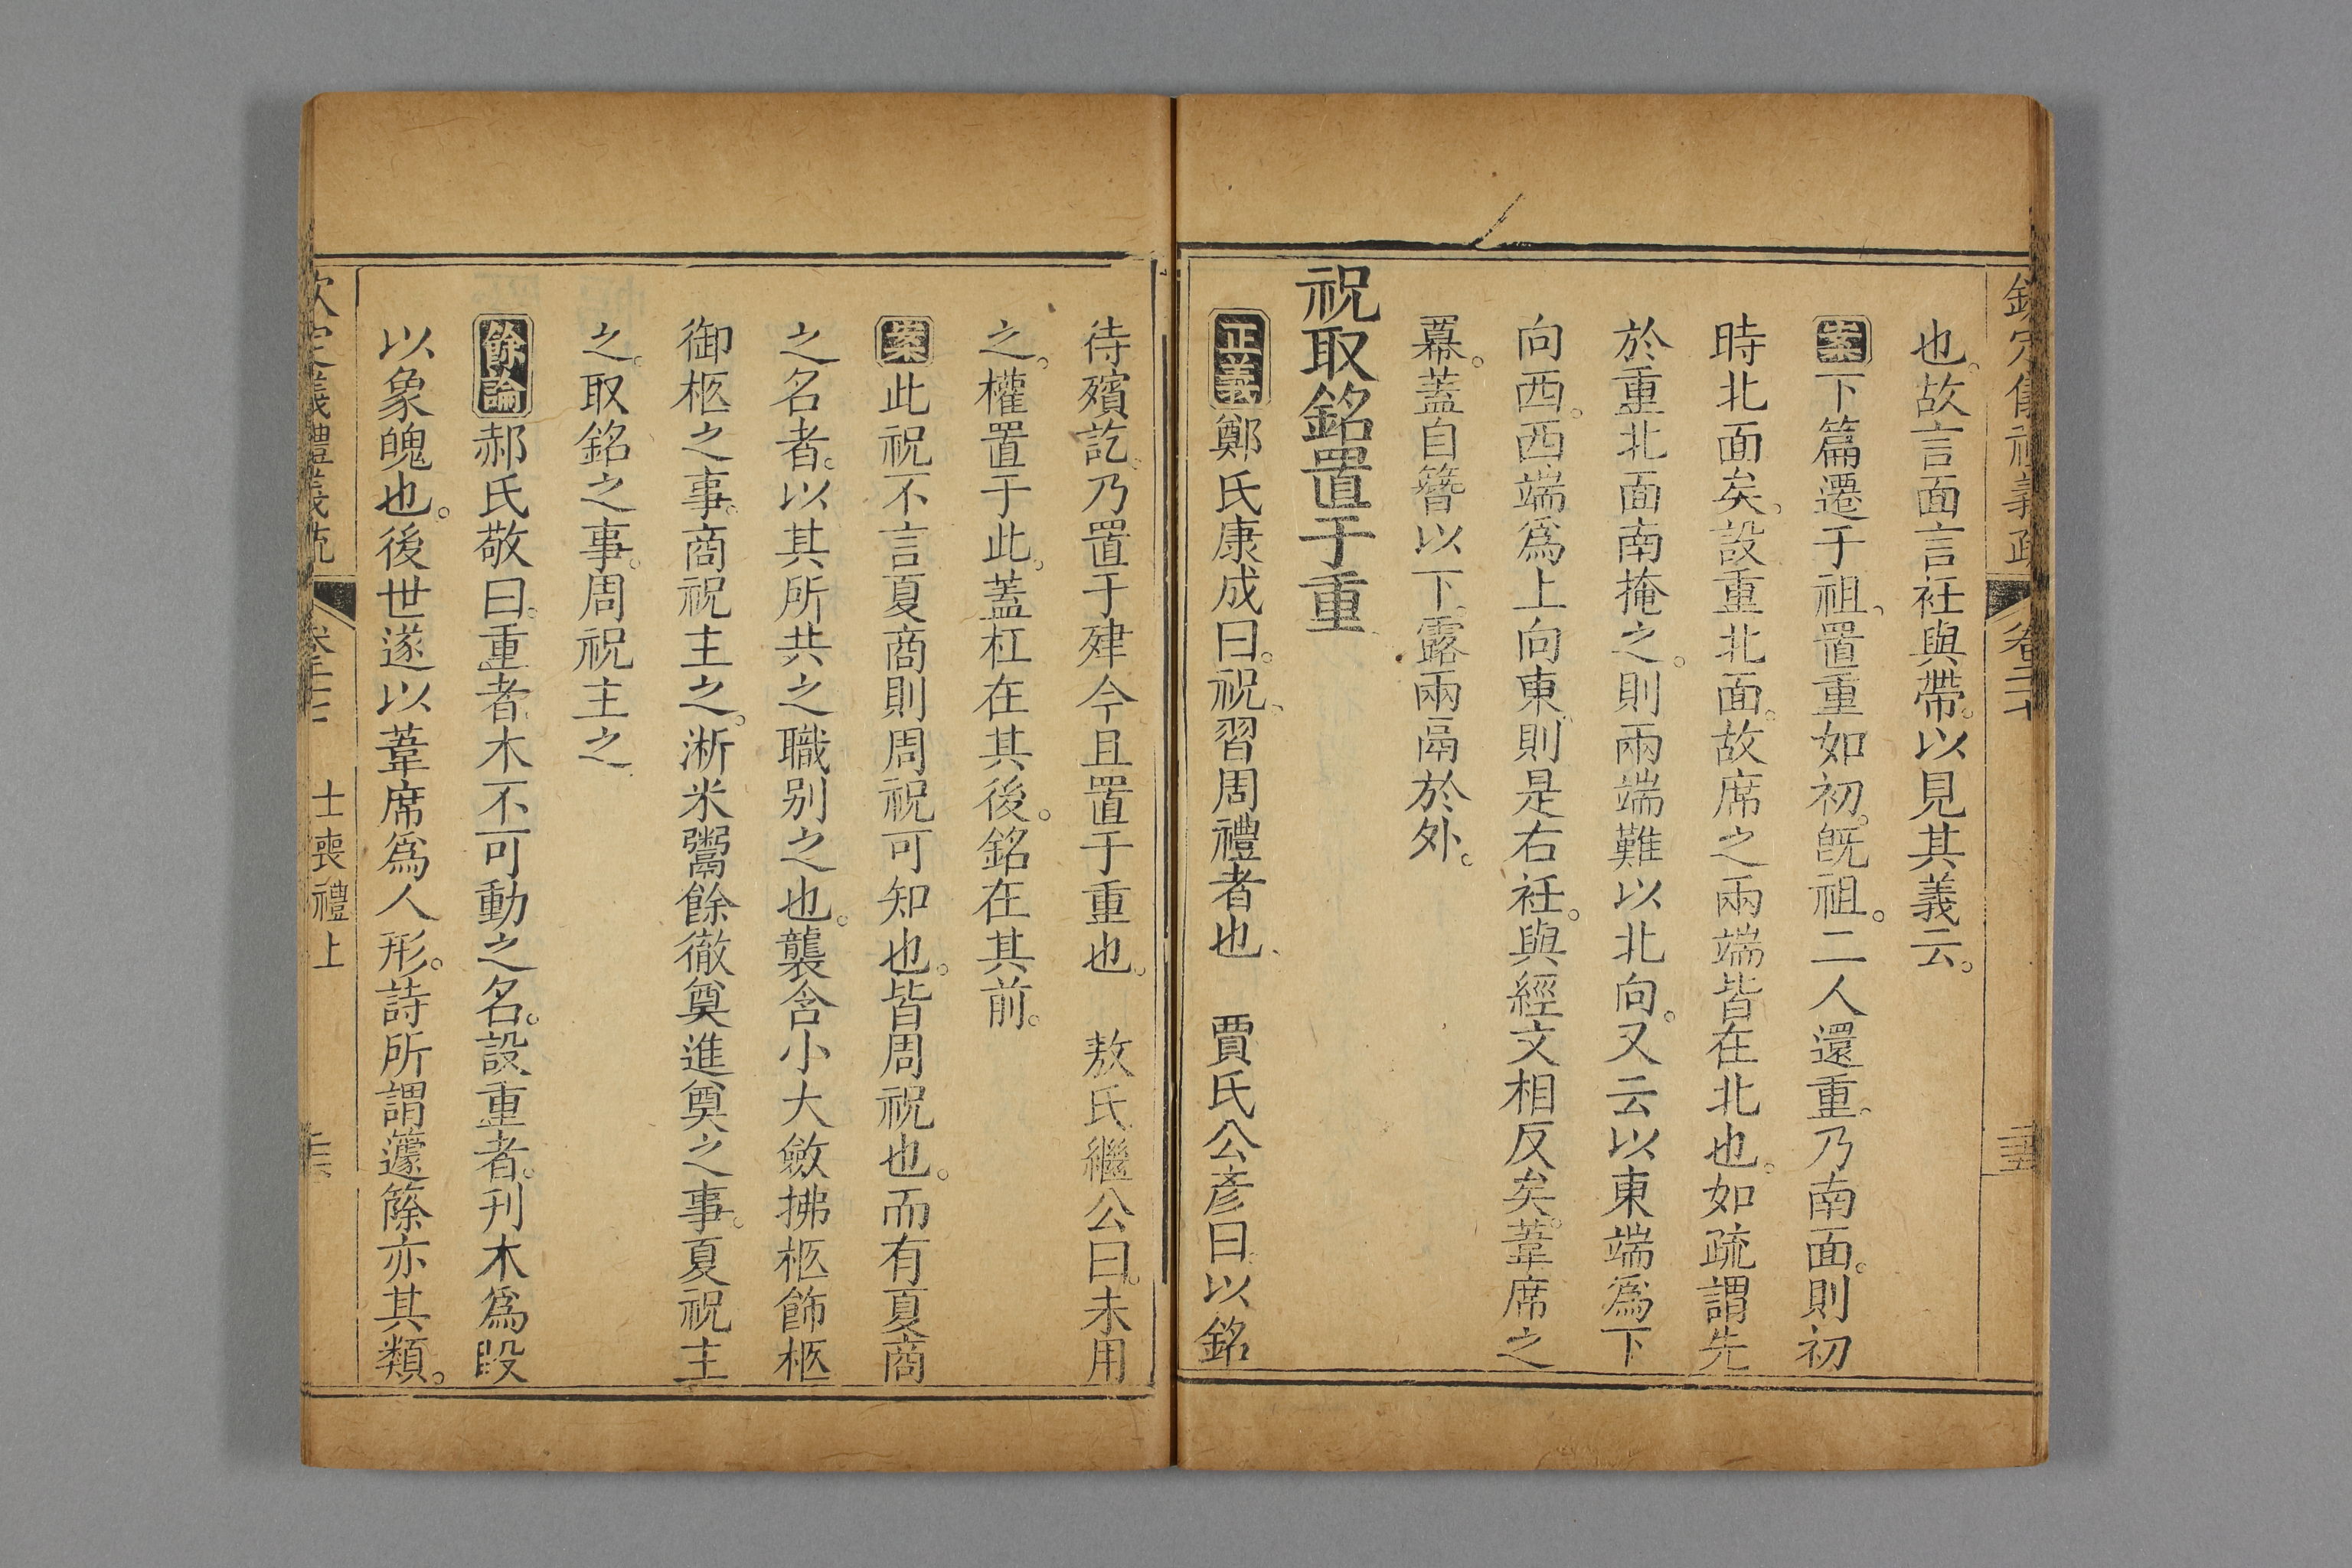 也。故言面言衽與帶。以見其義云。
案下篇遷于祖、置重如初。旣祖。二人還重。乃南面。則初
時北面矣。設重北面。故席之兩端皆在北也。如疏謂先
於重北面南掩之。則兩端難以北向。又云以東端爲下
向西。西端爲上向東則是右衽。與經文相反矣。葦席之
冪。蓋自簪以下。露兩鬲於外。
祝取銘置于重
正義鄭氏康成曰。祝、習周禮者也、 賈氏公彥曰以銘
待殯訖。乃置于肂。今且置于重也。 敖氏繼公曰。未用
之。權置于此。蓋杠在其後。銘在其前。
案此祝不言夏商則周祝可知也。皆周祝也。而有夏商
之名者。以其所共之職别之也。襲含小大斂拂柩飾柩
御柩之事。商祝主之。淅米鬻餘徹奠進奠之事。夏祝主
之。取銘之事。周祝主之
餘論郝氏敬曰。重者木不可動之名。設重者。刋木爲段
以象魄也。後世遂以葦席爲人形。詩所謂籧篨亦其類。
欽定儀禮義疏 士喪禮上